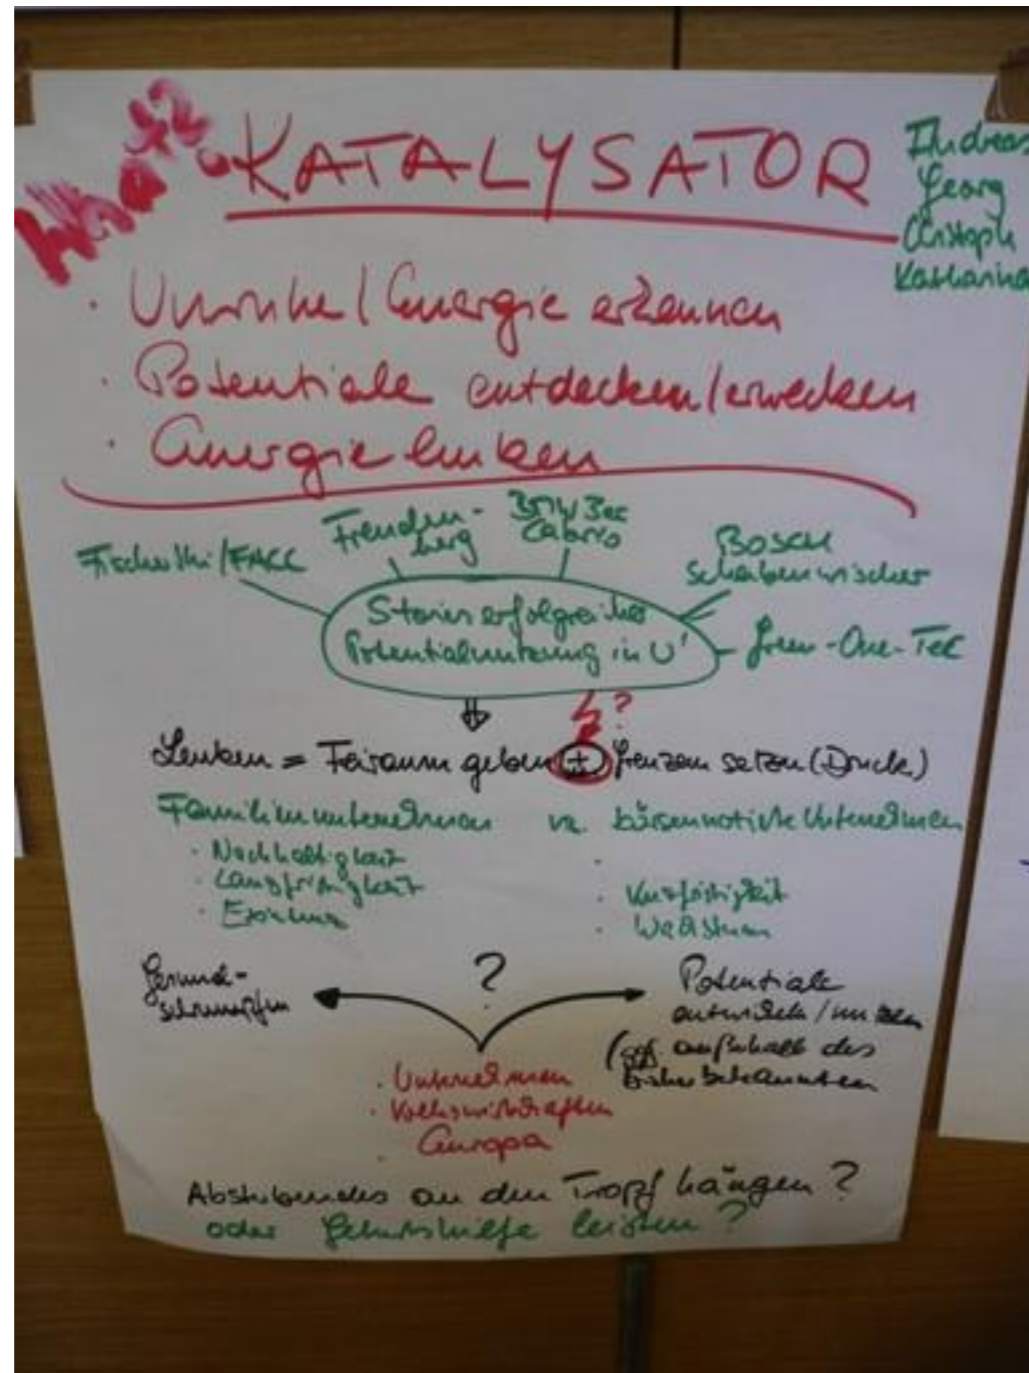 KATALYSATOR
Andreas
Georg
Christoph
Katharina
· Unruhe / Energie erkennen
· Potentiale entdecken / erwecken
· Energie lenken
Fischer Ski / FACC
Freuden-
berg
BMW 3er
Cabrio
Bosch
Scheibenwischer
Green-One-Tec
Stories erfolgreicher
Potentialnutzung in U'
⇓
?
Lenken = Freiraum geben + Grenzen setzen (Druck)
Familienunternehmen vs. börsennotierte Unternehmen
· Nachhaltigkeit
· Langfristigkeit
·
· Kurzfristigkeit
· Wachstum
Gesund-
schrumpfen
?
Potentiale
entwickeln / nutzen
(ggf. außerhalb des
bisher bekannten
· Unternehmen
· Volkswirtschaften
· Europa
Absterbendes an den Tropf hängen ?
oder Geburtshilfe leisten ?